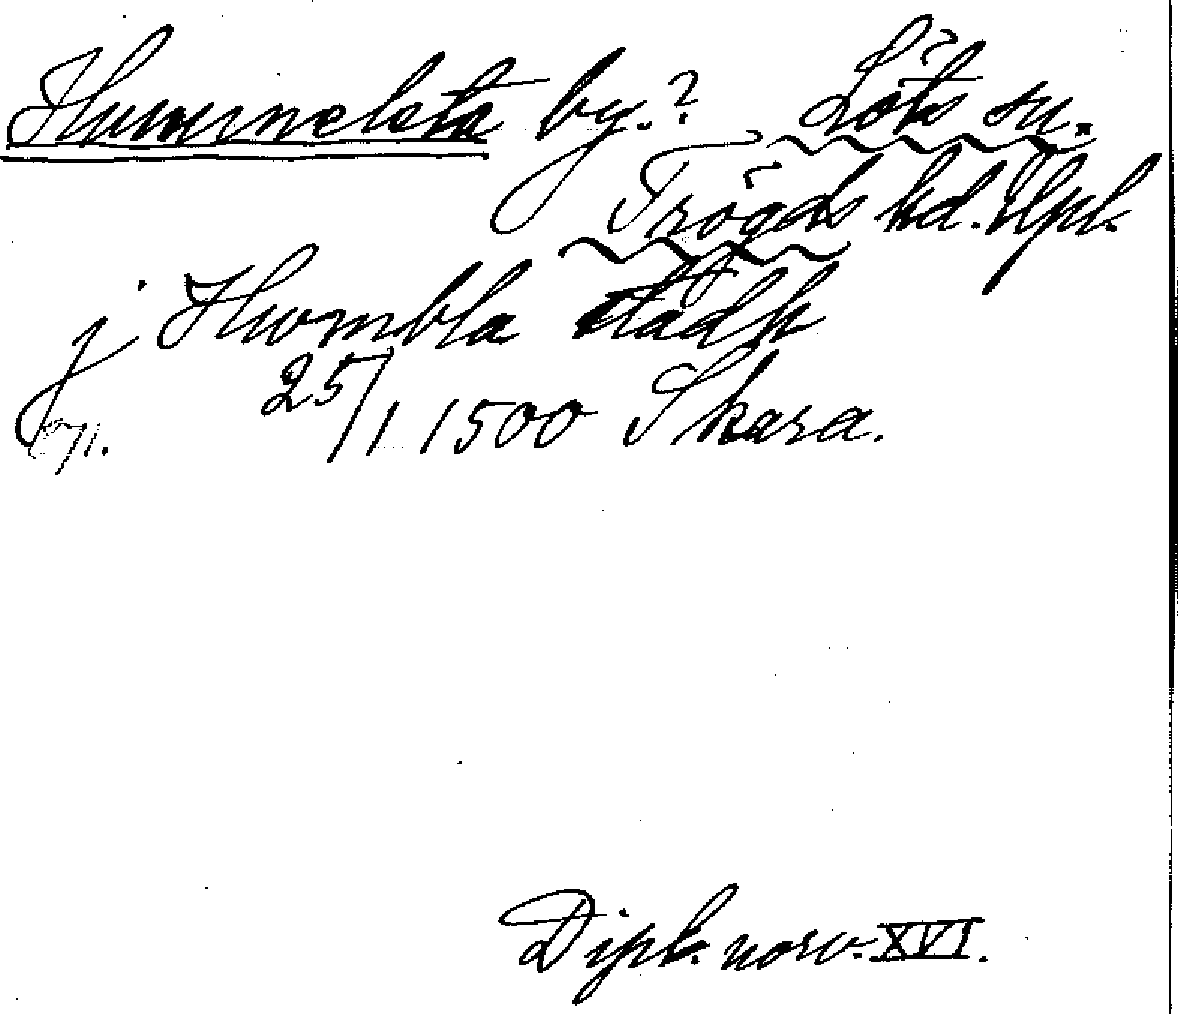 Hummelsta by.? Löts sn.
Trögds hd. Upl.
j Humbla stadh
25/1 1500 Skara.
Dipl. norv. XVI.